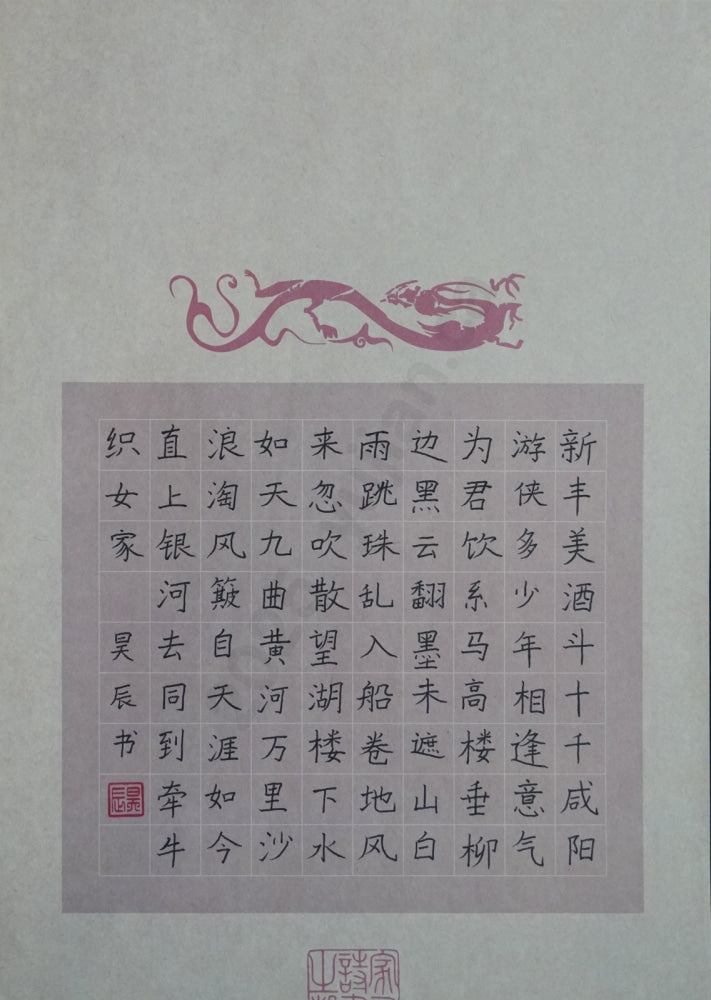 新丰美酒斗十千咸阳
游侠多少年相逢意气
为君饮系马高楼垂柳
边黑云翻墨未遮山白
雨跳珠乱入船卷地风
来忽吹散望湖楼下水
如天九曲黄河万里沙
浪淘风簸自天涯如今
直上银河去同到牵牛
织女家 昊辰书
昊辰